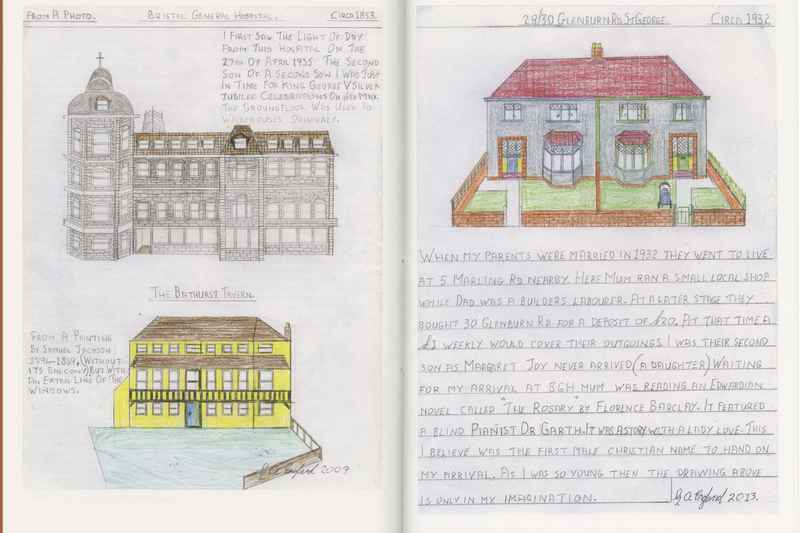 FROM A PHOTO. BRISTOL GENERAL HOSPITAL. CIRCA 1853.
I FIRST SAW THE LIGHT OF DAY
FROM THIS HOSPITAL ON THE
27TH OF APRIL 1935 THE SECOND
SON OF A SECOND SON I WAS JUST
IN TIME FOR KING GEORGE V SILVER
JUBILEE CELEBRATIONS ON
THE GROUNDFLOOR WAS USED TO
WAREHOUSES
THE BATHURST TAVERN.
FROM A PAINTING
BY SAMUEL JACKSON
1794-1869. (WITHOUT
ITS BALCONY) BUT WITH
AN EXTRA LINE OF
WINDOWS.
2009
29/30 GLENBURN RD ST GEORGE. CIRCA 1932
WHEN MY PARENTS WERE MARRIED IN 1932 THEY WENT TO LIVE
AT 5 MARLING RD NEARBY. HERE MUM RAN A SMALL LOCAL SHOP
WHILE DAD WAS A BUILDERS LABOURER. AT A LATER STAGE THEY
BOUGHT 30 GLENBURN RD FOR A DEPOSIT OF £20. AT THAT TIME A
£1 WEEKLY WOULD COVER THEIR OUTGOINGS. I WAS THEIR SECOND
SON AS MARGARET JOY NEVER ARRIVED (A DAUGHTER) WAITING
FOR MY ARRIVAL AT BGH MUM WAS READING AN EDWARDIAN
NOVEL CALLED "THE ROSARY" BY FLORENCE BARCLAY. IT FEATURED
A BLIND PIANIST DR GARTH. IT WAS A STORY WITH A LADY LOVE. THIS
I BELIEVE WAS THE FIRST MALE CHRISTIAN NAME TO HAND ON
MY ARRIVAL. AS I WAS SO YOUNG THEN THE DRAWING ABOVE
IS ONLY IN MY IMAGINATION. 2013.